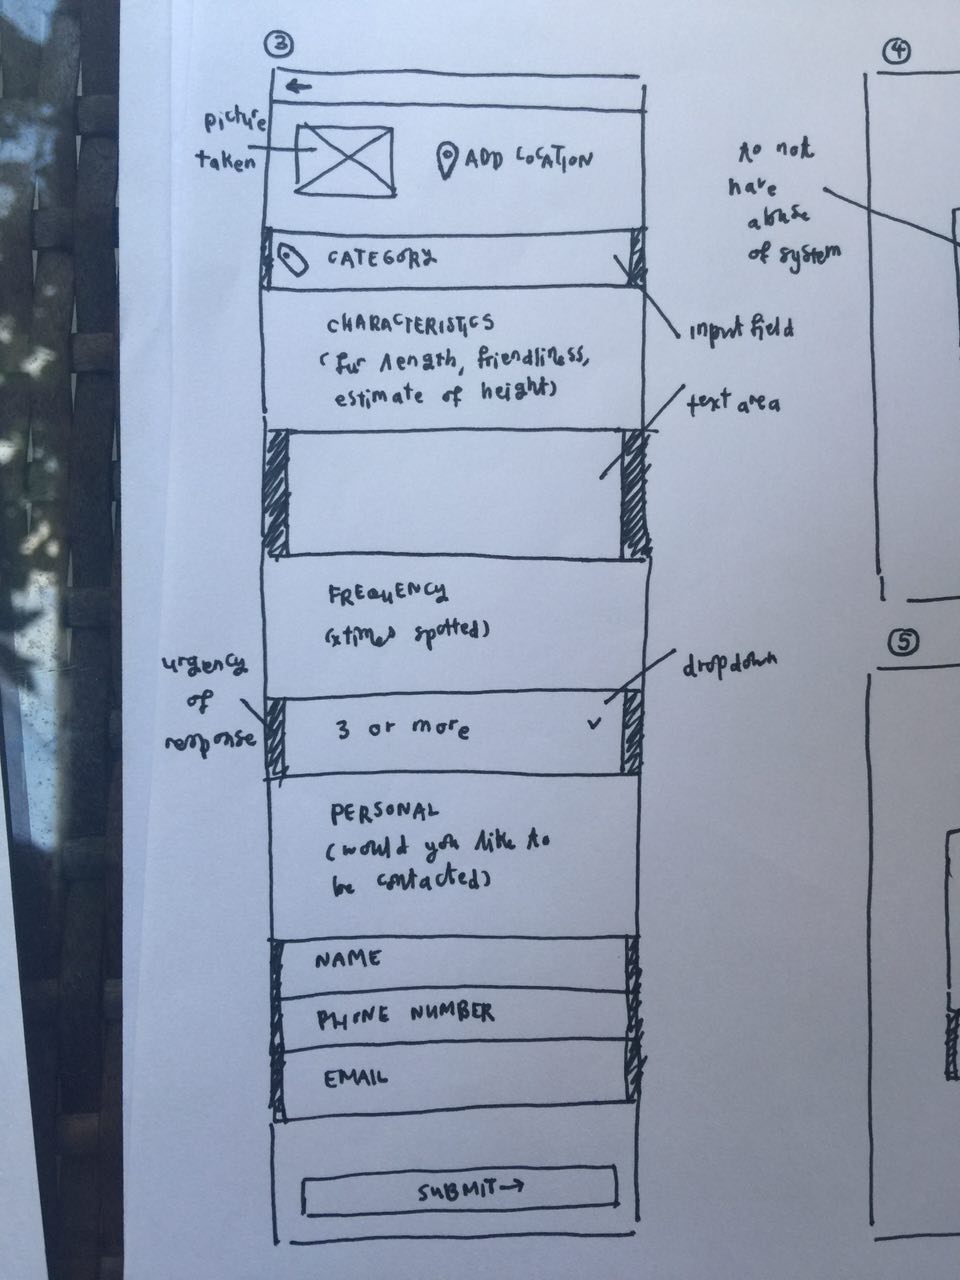 ③
←
picture
taken
ADD LOCATION
CATEGORY
input field
CHARACTERISTICS
(fur length, friendliness,
estimate of height)
text area
FREQUENCY
(x times spotted)
dropdown
urgency
of
response
3 or more
PERSONAL
(would you like to
be contacted)
NAME
PHONE NUMBER
EMAIL
SUBMIT→
④
to not
have
abuse
of system
⑤